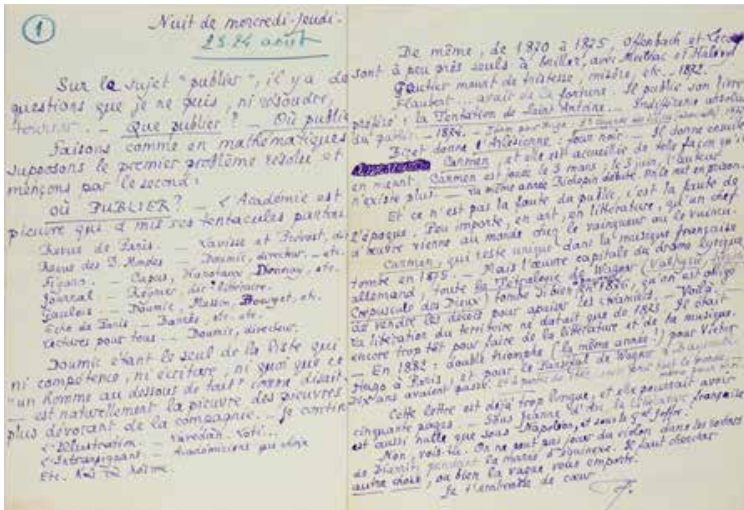 1
Nuit de mercredi-jeudi -
23 24 août
Sur le sujet "publier", il y a de
questions que je ne puis, ni résoudre,
trancher. — Que publier ? — Où publie
Faisons comme en mathématiques
supposons le premier problème résolu et
mençons par le second :
OÙ PUBLIER ? — L'Académie est
pieuvre qui a mis ses tentacules partou
Revue de Paris. — Lavisse et Prévost, di
Revue des 2 Mondes — Doumic, director. — etc.
Figaro. — Capus, Hanotaux Donnay, etc.
Journal — Régnier, dir. littéraire.
Gaulois — Doumic, Masson, Bourget, etc.
Echo de Paris — Barrès, etc. etc.
Lectures pour tous — Doumic, directeur.
Doumic étant le seul de la liste qui
ni compétence, ni écriture, ni quoi que ce
"un homme au dessous de tout" comme disait
— est naturellement la pieuvre des pieuvres
plus dévorant de la compagnie. — Je contin
L'Illustration — Lavedan. Loti..
L'Intransigeant — Académiciens
Etc.
De même, de 1870 à 1875, Offenbach et Leco
sont à peu près seuls à briller, avec Meilhac et Halévy
Gautier meurt de tristesse, misère, etc. 1872.
Flaubert avait de la fortune. Il publie son livre
préféré : la Tentation de Saint Antoine. — Indifférence absolue
du public. — 1874.
Bizet donne l'Arlésienne : four noir. — Il donne ensuite
Carmen, et elle est accueillie de telle façon qu'il
en meurt. Carmen est jouée le 3 mars ; le 3 juin, l'auteur
n'existe plus. — La même année Richepin débute. On le met en prison.
Et ce n'est pas la faute du public, c'est la faute de
l'époque. Peu importe, en art, en littérature, qu'un chef
d'œuvre vienne au monde chez le vainqueur ou le vaincu.
Carmen, qui reste unique dans la musique française
tombe en 1875. — Mais l'œuvre capitale du drame lyrique
allemand, toute la Tétralogie de Wagner (Valkyrie,
Crépuscule des Dieux) tombe si bien en 1876, qu'on est obligé
de vendre les décors pour apaiser les créanciers. — Voilà. —
La libération du territoire ne datait que de 1873. Il était
encore trop tôt pour faire de la littérature et de la musique.
— En 1882 : double triomphe (la même année !) pour Victor
Hugo à Paris, et pour le Parsifal de Wagner à Bayreuth
Dix ans avaient passé.
Cette lettre est déjà trop longue, et elle pourrait avoir
cinquante pages. — Sous Jeanne d'Arc, la littérature française
est aussi nulle que sous Napoléon, et sous le Gal Joffre.
Non, vois-tu. On ne peut pas jouer du violon dans les rochers
de Biarritz pendant la marée d'équinoxe. Il faut chercher
autre chose, ou bien la vague vous emporte.
Je t'embrasse de cœur